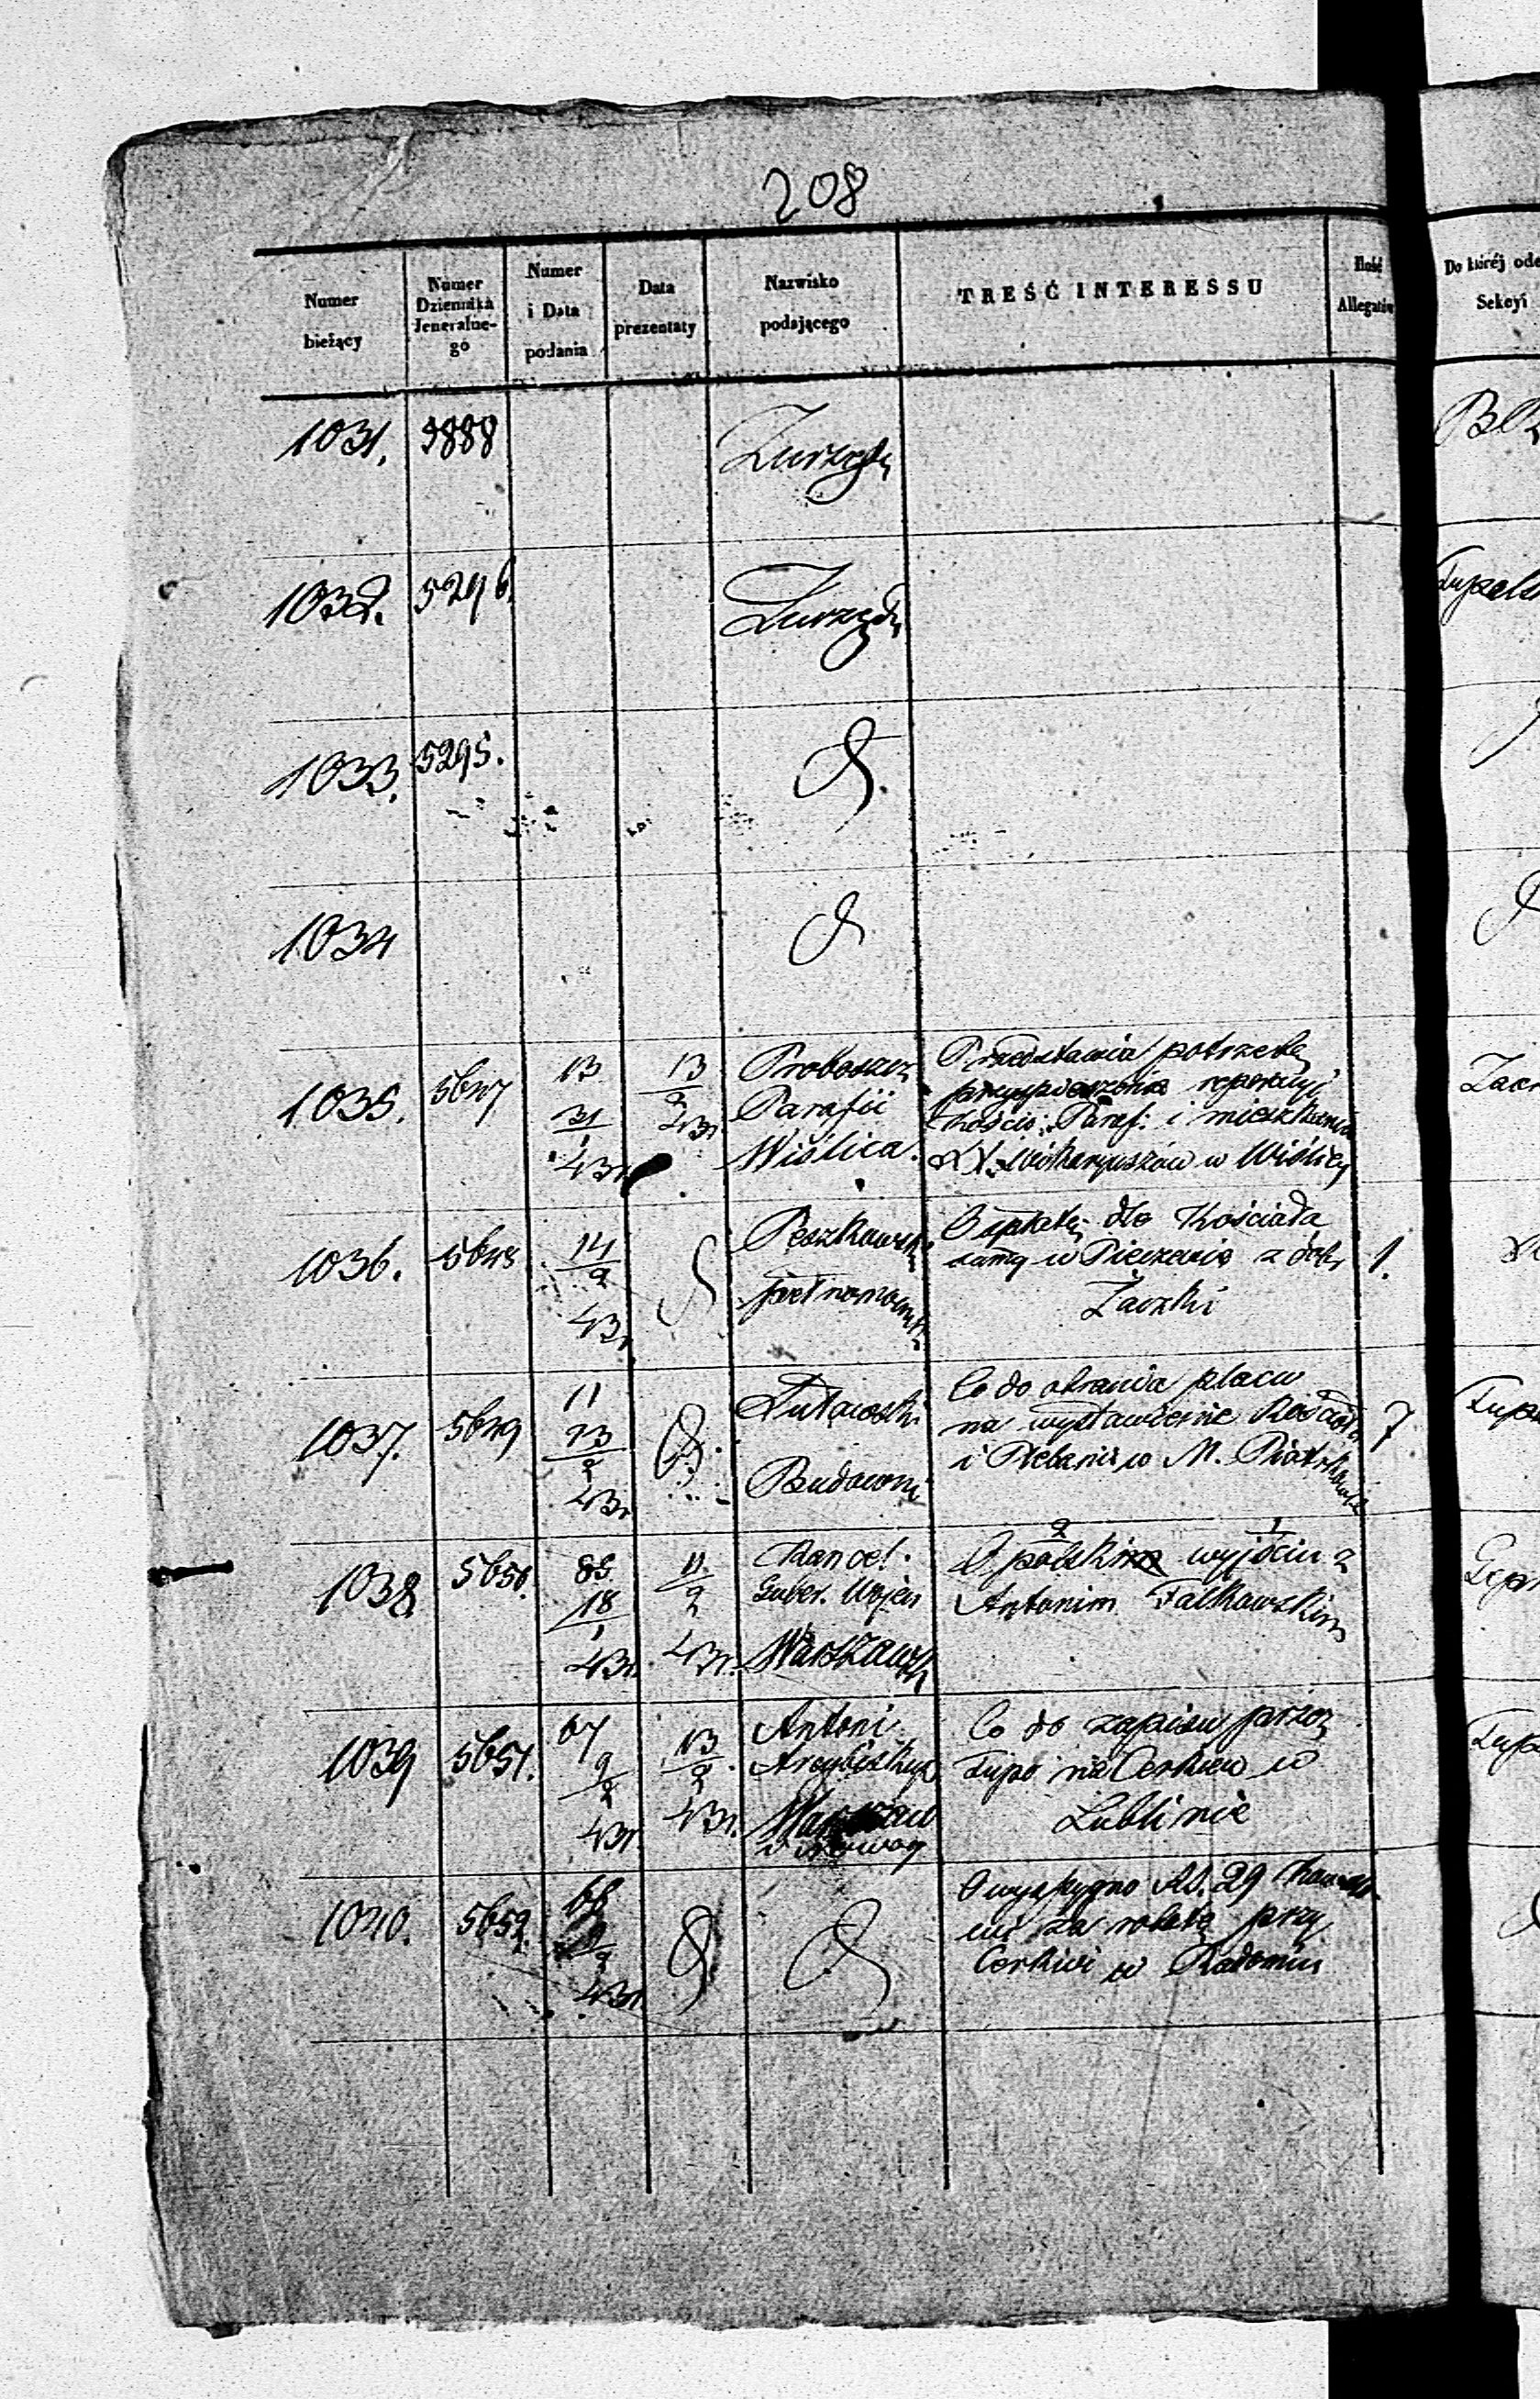 208
Numer bieżący
Numer Dziennika Jeneralne-go
Numer i Data podania
Data prezentaty
Nazwisko podającego
TREŚĆ INTERESSU
Ilość Allegatów
Do któréj ode
Sekcyi
1031. 3888 Zurzędu
1032. 5296. Zurzędu
1033. 5295.
1034
1035. 5647 13 31/1 43r. 13/2 43r.
Proboszcz
Parafii
Wiślica.
Przedstawia potrzebę
przyspieszenia reperacyi
Kościo: Paraf: i mieszkania
XX. Wikaryuszów w Wiślicy
1036. 5648 14/2 43r.
Peszkowski
pełnomocnik
O spłatę dla Kościoła
sumy w z dóbr
Żaczki
1.
1037. 5649 11 23/2 43r.
Lutowski
Budowni
Co do obrania placu
na wystawienie Kościoła
i Plebanii w M. Piotrkowie
7
1038 5650. 83 18/1 43r. 11/2 43r.
Kancel.
Guber. Wojen
Warszawsk
O polskim wyjściu z
Antonim Falkowskim
1039 5651. 67 9/2 43r. 13/2 43r.
Antoni
Arcybiskup
Warszaw
Co do zapisu przez
na Cerkiew w
Lublinie
1040. 5652. 68 9/2 43r.
O Rs. 29
za robotę przy
Cerkwi w Radomiu